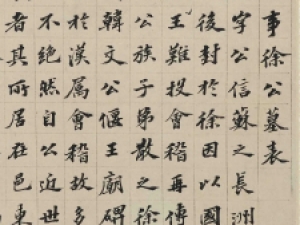 事徐公墓表
字公信蘇之長洲
後封於徐因以國
王難投會稽再傳
公族子第散之徐
韓文公偃王廟碑
於漢属會稽故多
不絶然自公近世
者其所居在邑東